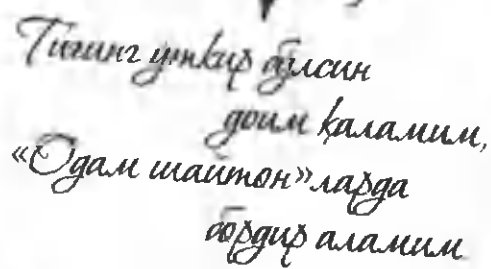 Тиғинг ўткир бўлсин
доим қаламим,
«Одам шайтон»ларда
бордир аламим